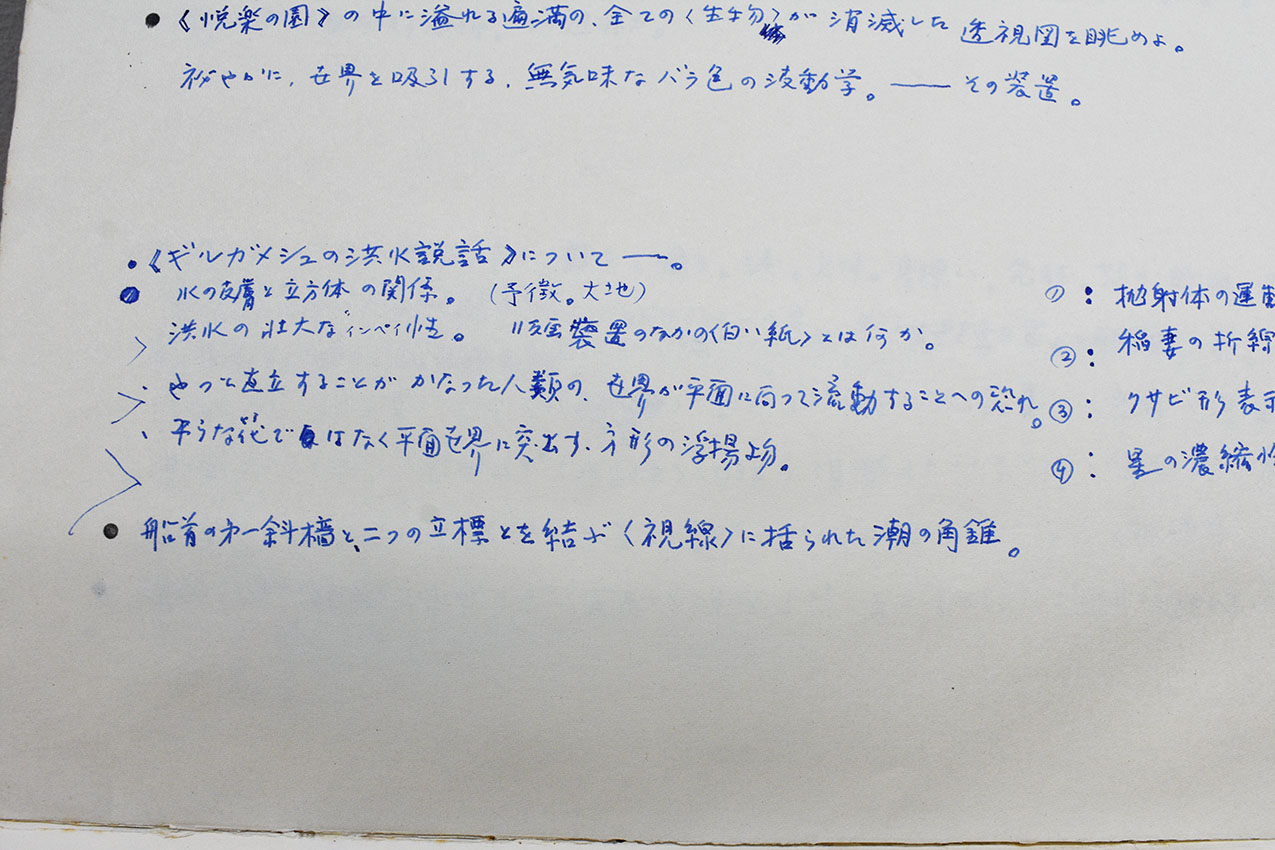 ● 《悦楽の園》の中に溢れる遍満の、全ての〈生物〉が消滅した透視図を眺めよ。
世界を吸引する、無気味なバラ色の波動学。——その装置。
● 《ギルガメシュの洪水説話》について——。
● 水の皮膚と立方体の関係。(予徴。大地)
洪水の壮大な"インペイ性。 装置のなかの〈白い紙〉とは何か。
やっと直立することがかなった人類の、世界が平面に向って流動することへの恐れ。
平らな花ではなく平面世界に突出す、方形の浮揚物。
● 船首の第一斜檣と、二つの立標とを結ぶ〈視線〉に括られた潮の角錐。
①: 抛射体の運動
②: 稲妻の折線
③: クサビ形表示
④: 星の濃縮